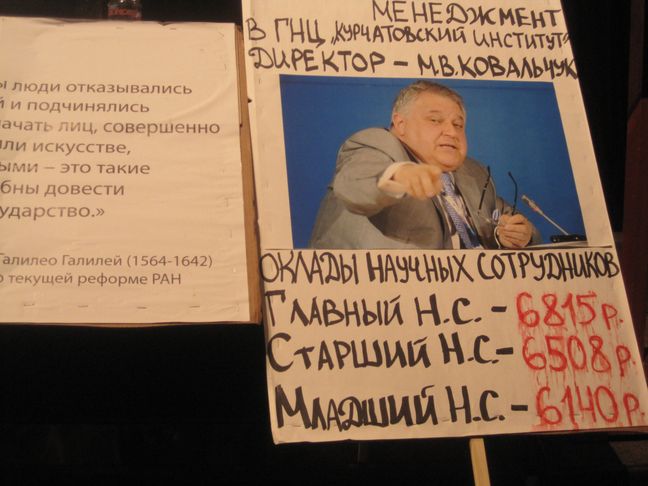 ы люди отказывались
й и подчинялись
начать лиц, совершенно
или искусстве,
ыми – это такие
бны довести
ударство.»
Галилео Галилей (1564-1642)
о текущей реформе РАН
МЕНЕДЖМЕНТ
В ГНЦ „КУРЧАТОВСКИЙ ИНСТИТУТ”
ДИРЕКТОР – М.В.КОВАЛЬЧУК
ОКЛАДЫ НАУЧНЫХ СОТРУДНИКОВ
ГЛАВНЫЙ Н.С. – 6815 р.
СТАРШИЙ Н.С. – 6508 р.
МЛАДШИЙ Н.С. – 6140 р.